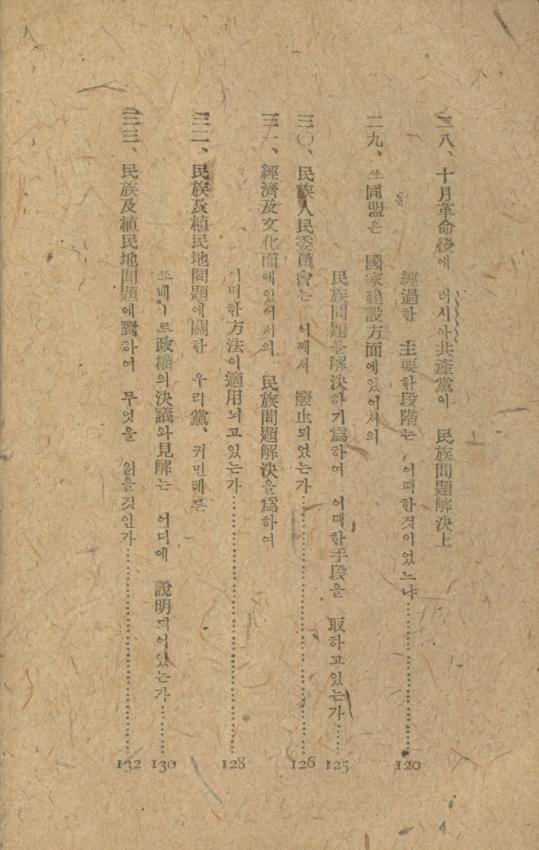 二八、十月革命後에 러시아共產黨이 民族問題解決上
經過한 主要한段階는 어떠한것이었느냐………120
二九、쏘同盟은 國家建設方面에있어서의
民族問題를解決하기爲하여 어떠한手段을 取하고있는가……125
三〇、民族人民委員會는 어째서 廢止되었는가………126
三一、經濟及文化面에있어서의 民族問題解決을爲하여
어떠한方法이適用되고있는가………128
三二、民族及植民地問題에關한 우리黨、커민테른
쏘베ㅣ트政權의決議와見解는 어디에 說明되어있는가……130
三三、民族及植民地問題에對하여 무엇을 읽을것인가………132